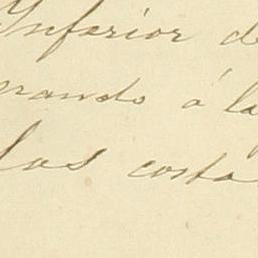 Inferior de
mando á la
las costa